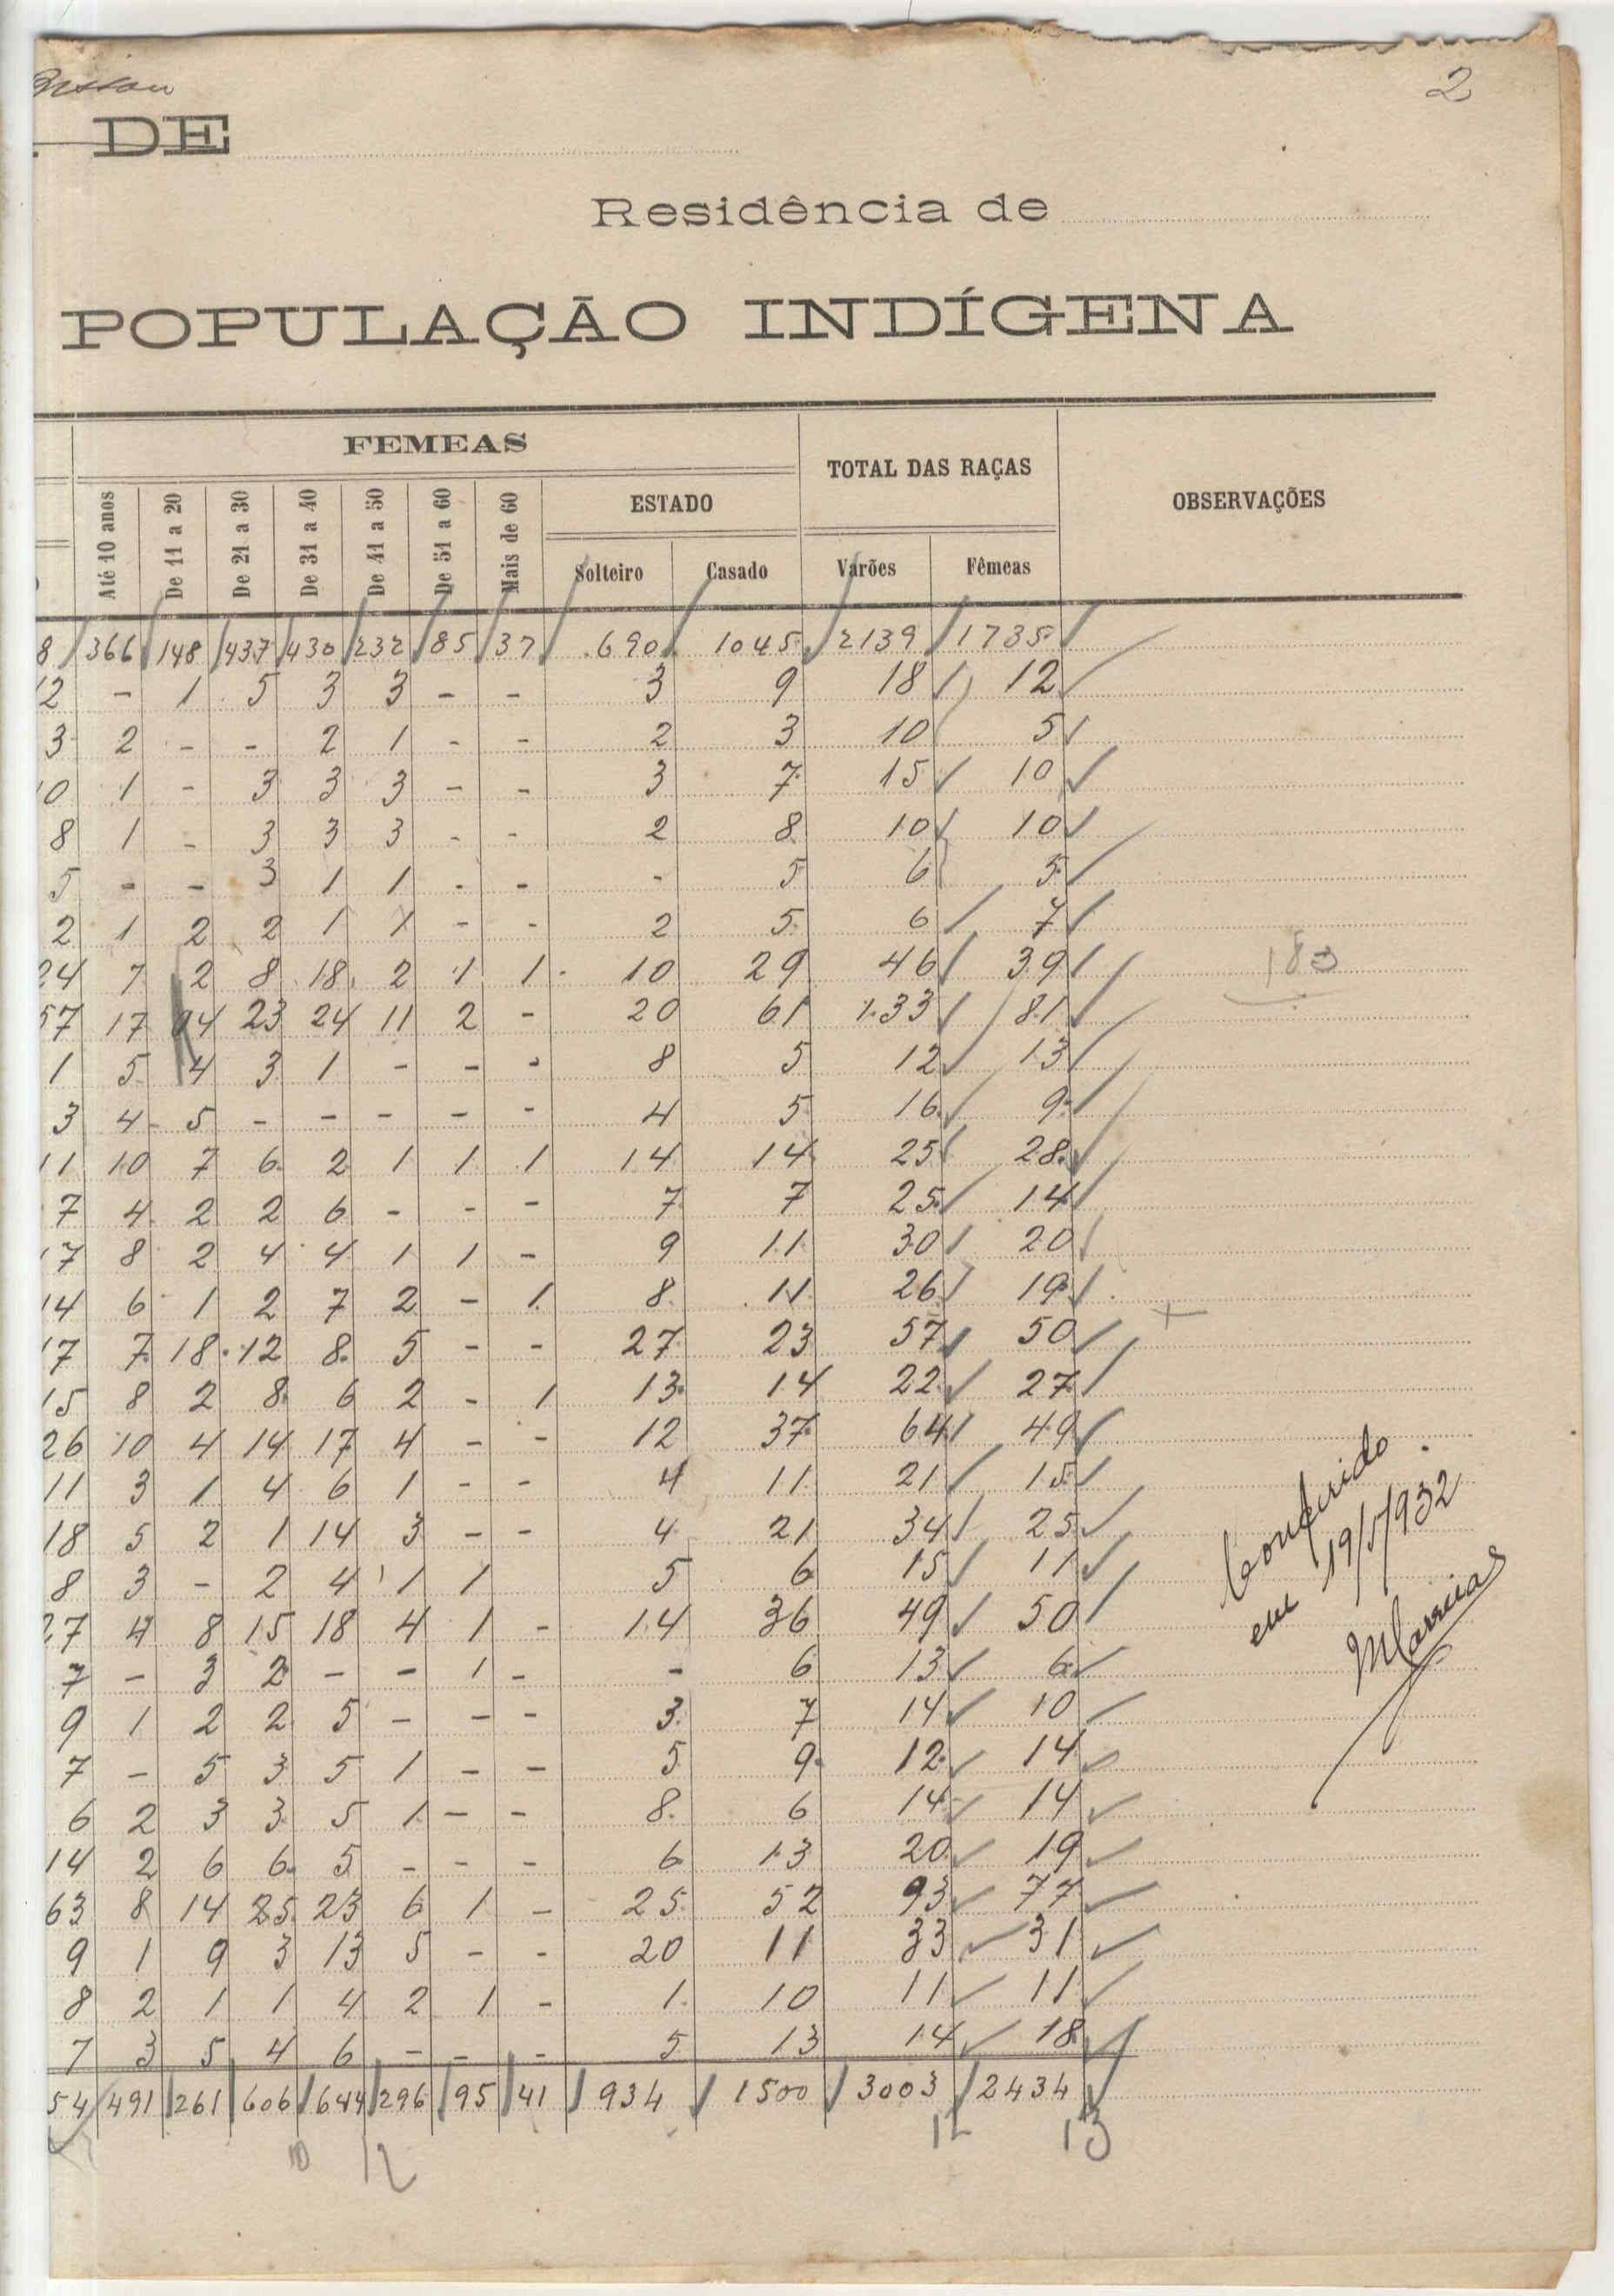 Bissau
2
. DE
Residência de
POPULAÇÃO INDÍGENA
FEMEAS
TOTAL DAS RAÇAS
OBSERVAÇÕES
Até 10 anos De 11 a 20 De 21 a 30 De 31 a 40 De 41 a 50 De 51 a 60 Mais de 60
ESTADO
Solteiro Casado Varões Fêmeas
8 366 148 437 430 232 85 37 690 1045 2139 1735
12 - 1 5 3 3 - - 3 9 18 12
3 2 - - 2 1 - - 2 3 10 5
10 1 - 3 3 3 - - 3 7 15 10
8 1 - 3 3 3 - - 2 8 10 10
5 - - 3 1 1 - - - 5 6 5
2 1 2 2 1 1 - - 2 5 6 7
24 7 2 8 18 2 1 1 10 29 46 39 183
57 17 04 23 24 11 2 - 20 61 133 81
1 5 4 3 1 - - - 8 5 12 13
3 4 5 - - - - - 4 5 16 9
11 10 7 6 2 1 1 1 14 14 25 28
7 4 2 2 6 - - - 7 7 25 14
17 8 2 4 4 1 1 - 9 11 30 20
14 6 1 2 7 2 - 1 8 11 26 19
17 7 18 12 8 5 - - 27 23 57 50
15 8 2 8 6 2 - 1 13 14 22 27
26 10 4 14 17 4 - - 12 37 64 49
11 3 1 4 6 1 - - 4 11 21 15
18 5 2 1 14 3 - - 4 21 34 25
8 3 - 2 4 1 1 5 6 15 11
27 4 8 15 18 4 1 - 14 36 49 50
7 - 3 2 - - 1 - - 6 13 6
9 1 2 2 5 - - - 3 7 14 10
7 - 5 3 5 1 - - 5 9 12 14
6 2 3 3 5 1 - - 8 6 14 14
14 2 6 6 5 - - - 6 13 20 19
63 8 14 25 23 6 1 - 25 52 93 77
9 1 9 3 13 5 - - 20 11 33 31
8 2 1 1 4 2 1 - 1 10 11 11
7 3 5 4 6 - - - 5 13 14 18
54 491 261 606 644 296 95 41 934 1500 3003 2434
12 12 13
Conferido
em 19/5/932